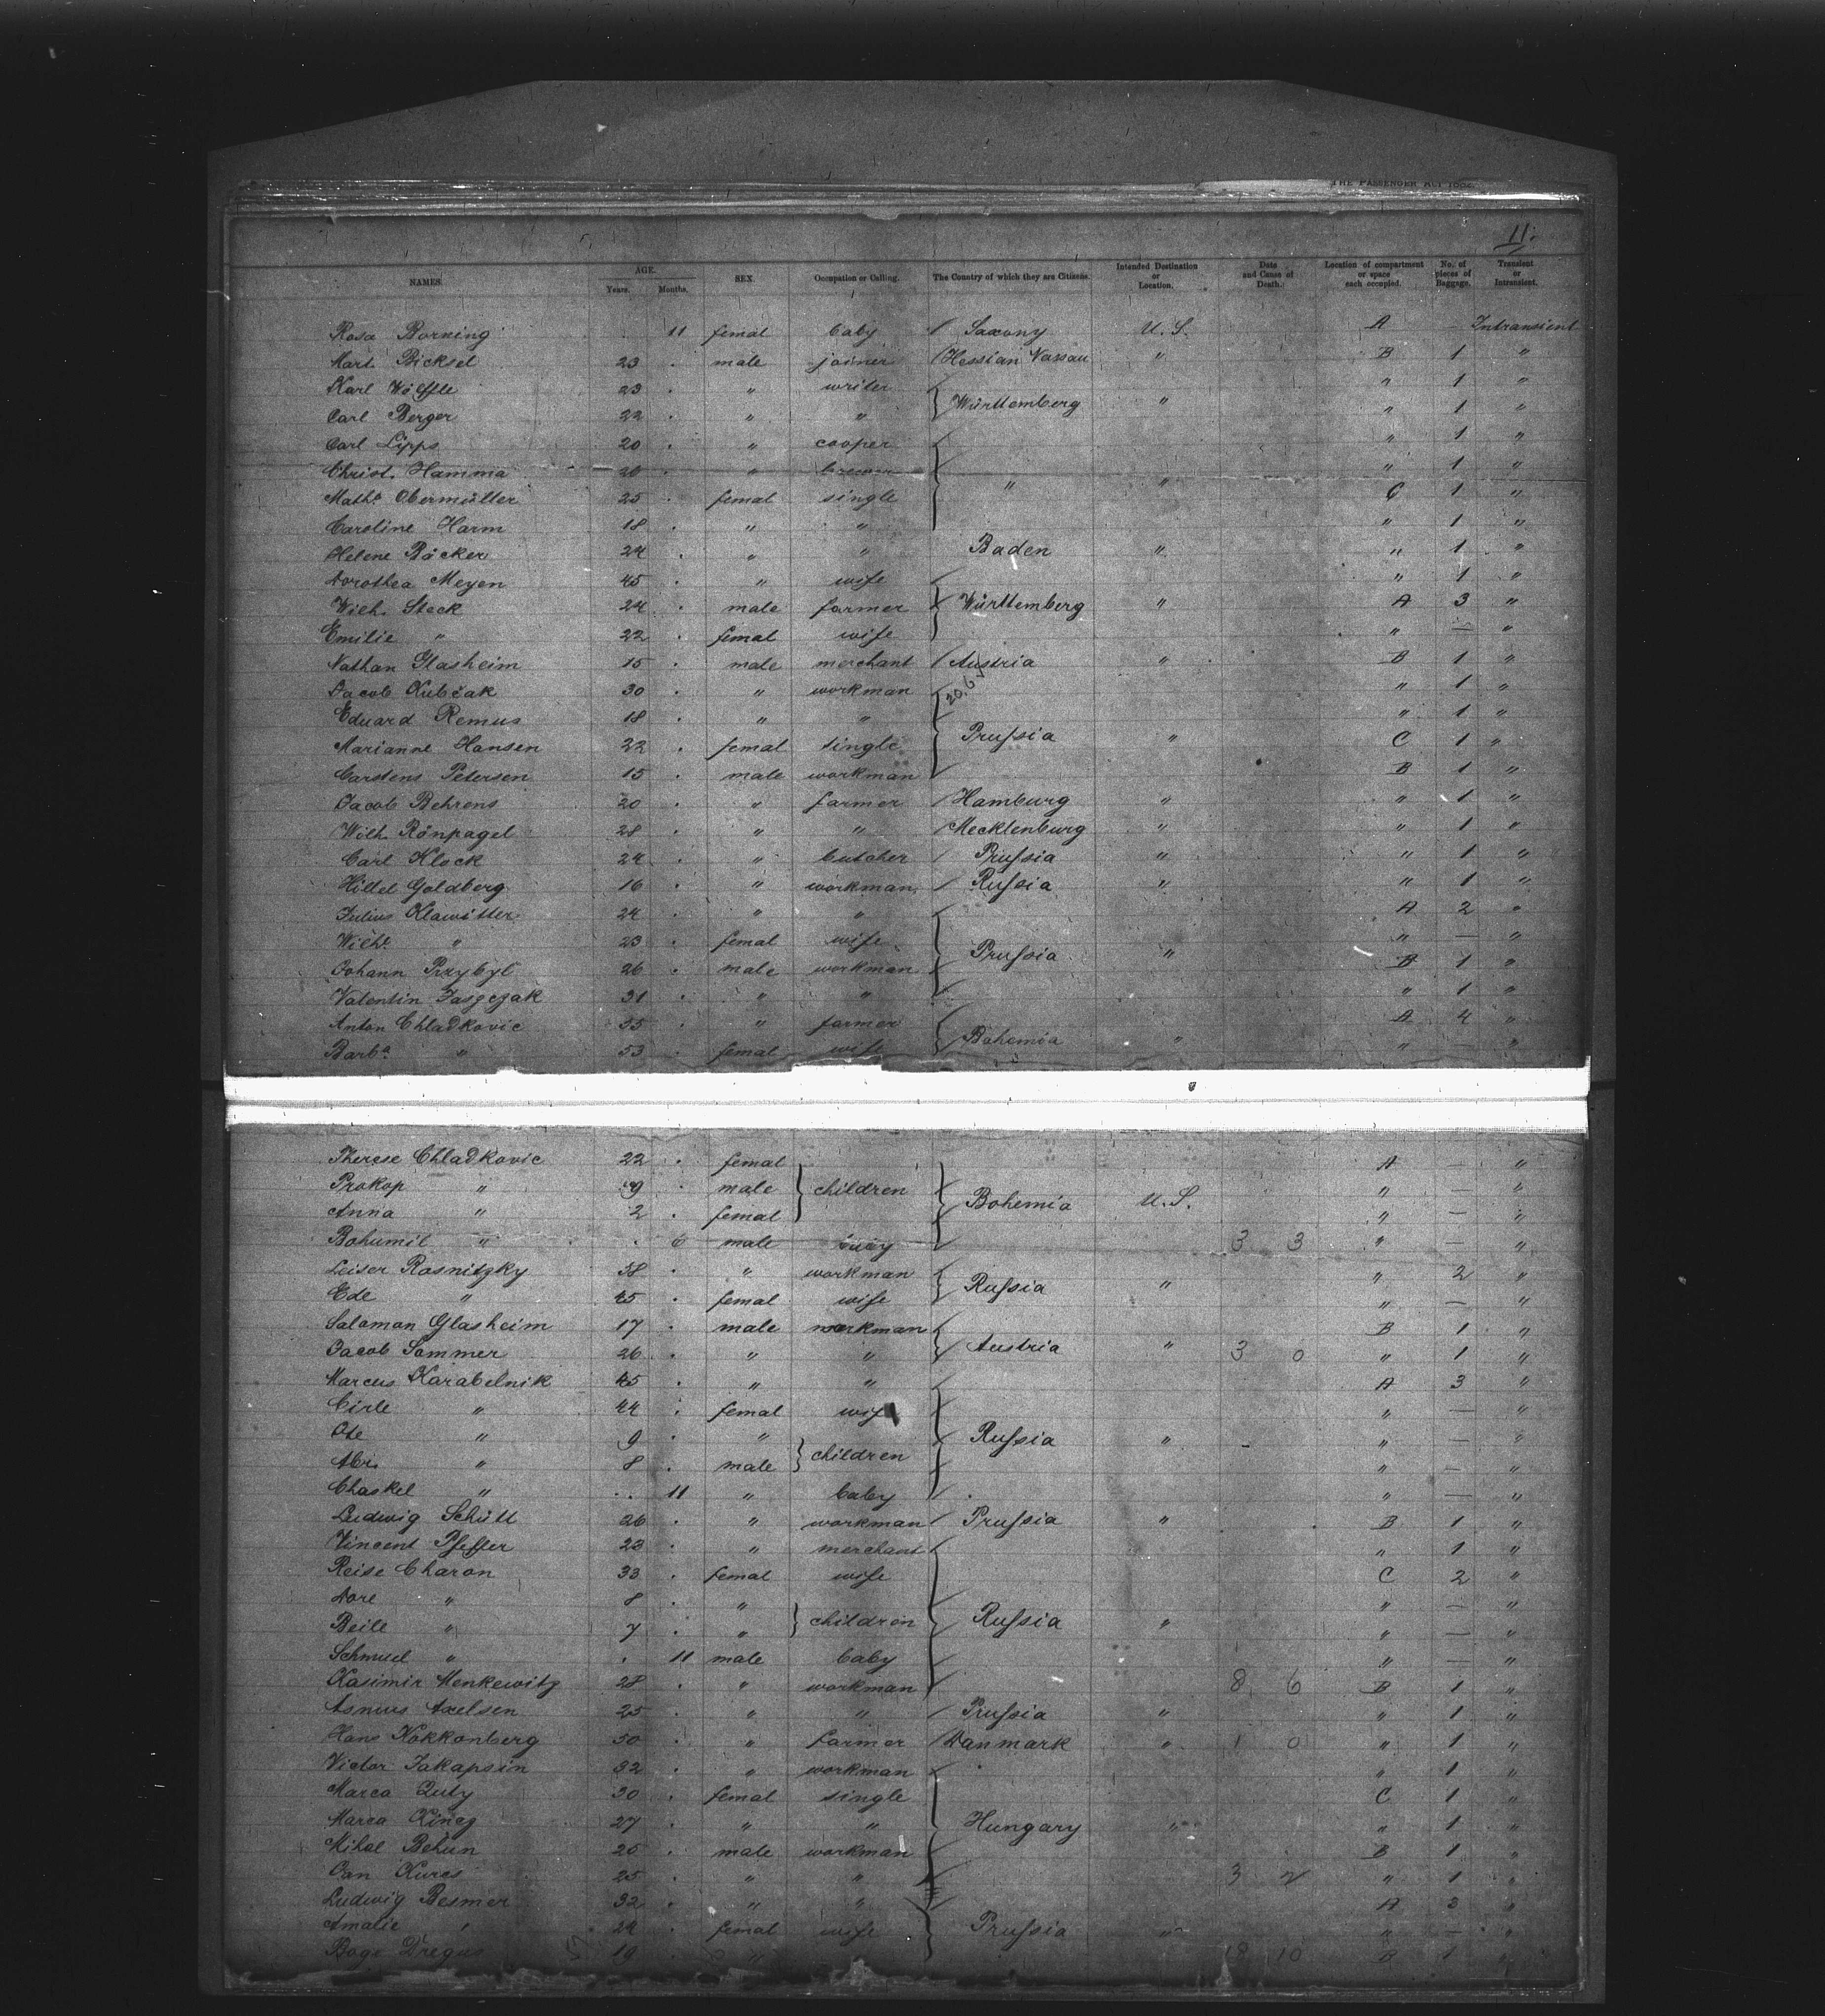 THE PASSENGER ACT 1882.
11.
NAMES. AGE. Years. Months. SEX. Occupation or Calling. The Country of which they are Citizens. Intended Destination or Location. Date and Cause of Death. Location of compartment or space each occupied. No. of pieces of Baggage. Transient or Intransient.
Rosa Borning . 11 femal baby / Saxony U. S. A Intransient
Mart. Bicksel 23 . male joiner / Hessian Nassau " B 1 "
Karl Wölffle 23 . " writer " 1 "
Württemberg "
Carl Berger 22 . " " " 1 "
Carl Lipps 20 . " cooper " 1 "
Christ. Hamma 20 " brewer " 1 "
" "
Mathe Obermüller 25 . femal single C 1 "
Caroline Harm 18 . " " " 1 "
Helene Bäcker 24 . " " Baden " " 1 "
Dorothea Meyen 45 . " wife " 1 "
Wilh. Steck 24 . male farmer Württemberg " A 3 "
Emilie " 22 . femal wife " — "
Nathan Glasheim 15 . male merchant / Austria " B 1 "
Jacob Kubčak 30 . " workman " 1 "
Eduard Remus 18 . " " " 1 "
Prussia "
Marianne Hansen 22 . femal single C 1 "
Carstens Petersen 15 . male workman B 1 "
Jacob Behrens 20 . " farmer / Hamburg " " 1 "
Wilh. Rönpagel 28 . " " / Mecklenburg " " 1 "
Carl Klock 24 . " butcher / Prussia " " 1 "
Hillel Goldberg 16 . " workman / Russia " " 1 "
Julius Klawitter 24 . " " A 2 "
Wilhe " 23 . femal wife " — "
Prussia "
Johann Przybyl 26 . male workman B 1 "
Valentin Jasgczak 31 . " " " 1 "
Anton Chladkovic 55 . " farmer A 4 "
Bohemia "
Barba " 53 . femal wife " — "
Therese Chladkovic 22 . femal A — "
Prokop " 9 . male children " — "
Bohemia U. S.
Anna " 2 . femal " — "
Bohumil " . 6 male baby 3 3 " — "
Leiser Rosnitzky 58 . " workman " 2 "
Russia "
Ede " 45 . femal wife " — "
Salomon Glasheim 17 . male workman B 1 "
Austria "
Jacob Sommer 26 . " " 3 0 " 1 "
Marcus Karabelnik 45 . " " A 3 "
Cirle " 44 . femal wife " — "
Ote " 9 . " Russia " " — "
children
Abr. " 8 . male " — "
Chaskel " . 11 " baby " — "
Ludwig Schütt 26 . " workman / Prussia " B 1 "
Vincent Pfeffer 23 . " merchant " 1 "
Reise Charon 33 . femal wife C 2 "
Dore " 8 . " " — "
children Russia "
Beile " 7 . " " — "
Schmuel " . 11 male baby " — "
Kasimir Menkewitz 28 . " workman 8 6 B 1 "
Asmus Axelsen 25 . " " / Prussia " " 1 "
Hans Kokkonberg 50 . " farmer / Danmark " 1 0 " 1 "
Victor Jakapsin 32 . " workman " 1 "
Marca Quty 30 . femal single C 1 "
Marca 27 . " " Hungary " " 1 "
Mihal Behun 25 . male workman B 1 "
Kurcs 25 . " " 3 2 " 1 "
Ludwig Besmer 32 . " " A 3 "
Amalie " 24 . femal wife Prussia " " — "
Dregus 19 . " 8 10 B 1 "